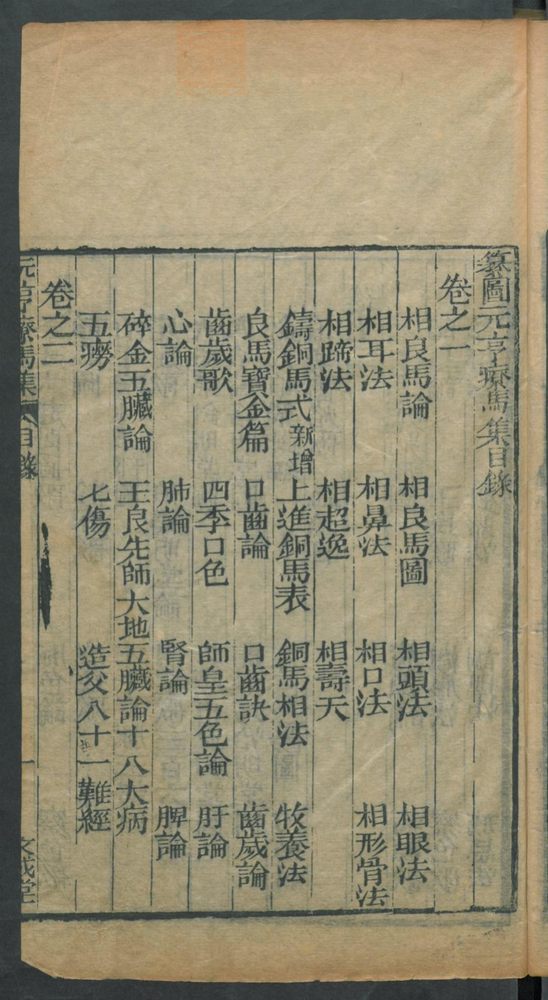 纂圖元亨療馬集目錄
卷之一
相良馬論 相良馬圖 相頭法 相眼法
相耳法 相鼻法 相口法 相形骨法
相蹄法 相超逸 相壽夭
鑄銅馬式新增 上進銅馬表 銅馬相法 牧養法
良馬寶金篇 口齒論 口齒訣 齒歲論
齒歲歌 四季口色 師皇五色論 肝論
心論 肺論 腎論 脾論
碎金五臟論 王良先師大地五臟論 十八大病
五癆 七傷 造父八十一難經
卷之二
元亨療馬集 目錄 一 文成堂